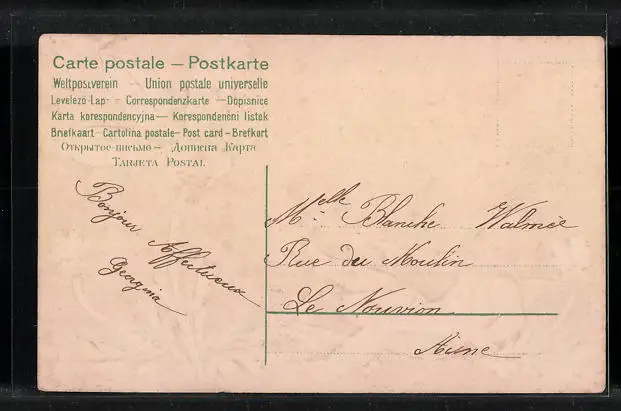 Carte postale — Postkarte
Weltpostverein — Union postale universelle
Levelező-Lap — Correspondenzkarte — Dopisnice
Karta korespondencyjna — Korespondenční lístek
Briefkaart — Cartolina postale — Post card — Brefkort
Открытое письмо — Дописна Карта
Tarjeta Postal
Bonjour Affectueux
Georgina
Melle Blanche Walmée
Rue du Moulin
Le Nouvion
Aisne